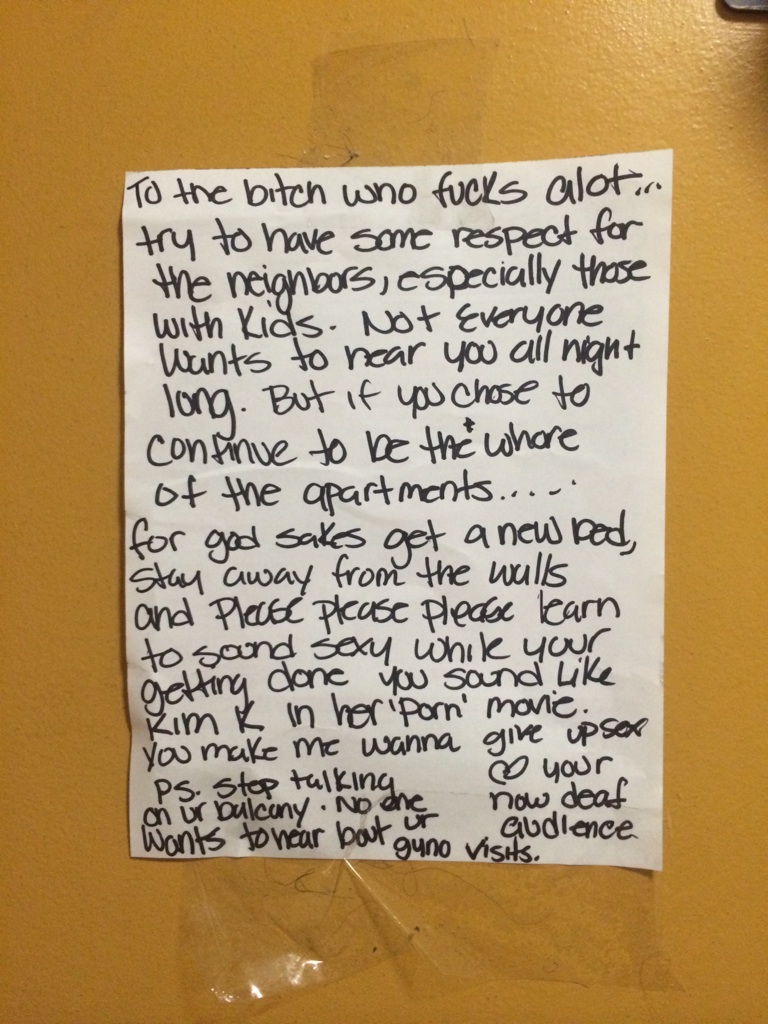 To the bitch who fucks alot...
try to have some respect for
the neighbors, especially those
with Kids. Not Everyone
wants to hear you all night
long. But if you chose to
continue to be the whore
of the apartments.....
for god sakes get a new bed,
stay away from the walls
and Please please please learn
to sound sexy while your
getting done you sound like
Kim K in her 'Porn' movie.
You make me wanna give up sex
♡ your
now deaf
audience
Ps. Stop talking
on ur balcany. No one
wants to hear bout ur
gyno visits.